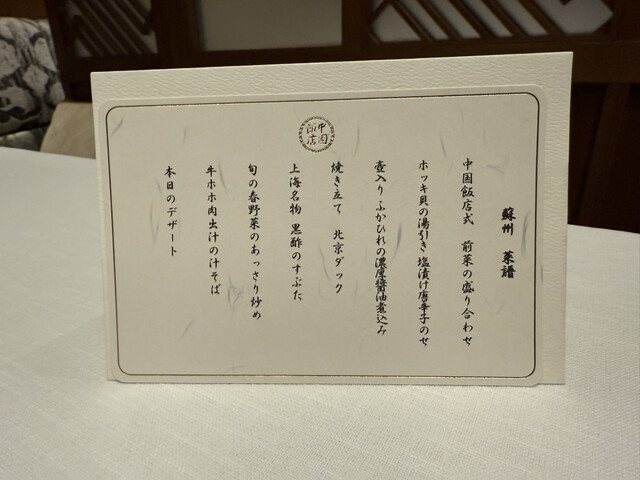 中国飯店
蘇州　菜譜
中国飯店式　前菜の盛り合わせ
ホッキ貝の湯引き 塩漬け唐辛子のせ
壺入りふかひれの濃厚醤油煮込み
焼き立て　北京ダック
上海名物　黒酢のすぶた
旬の春野菜のあっさり炒め
牛ホホ肉出汁の汁そば
本日のデザート